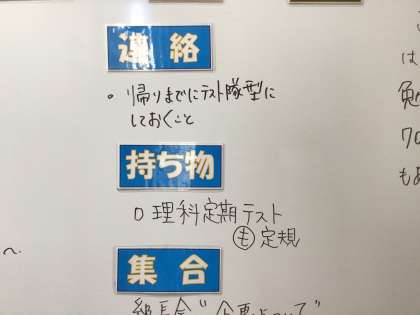 連絡
。帰りまでにテスト隊型に
しておくこと
持ち物
○理科定期テスト
も 定規
集合
は
勉
70
もあ
へ